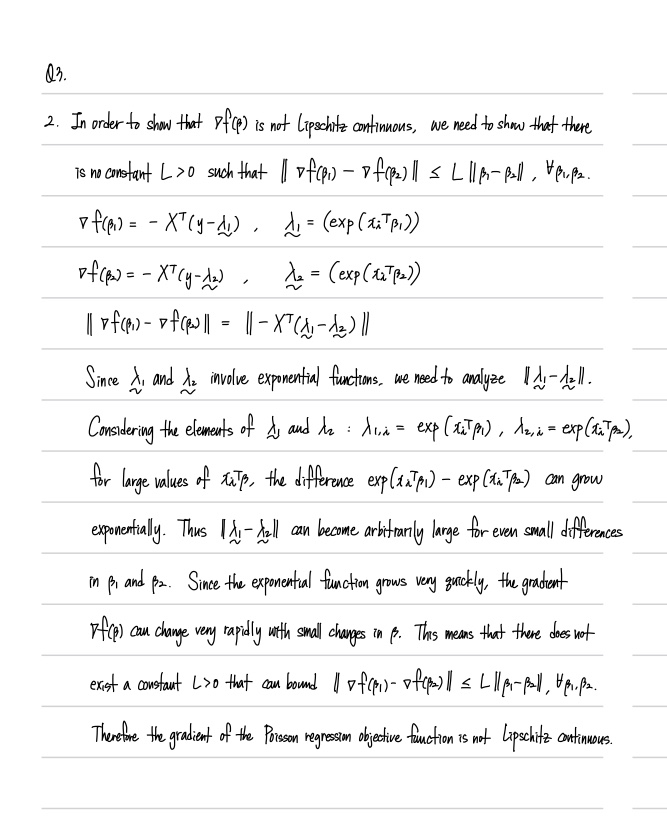 Q3.
2. In order to show that ∇f(β) is not Lipschitz continuous, we need to show that there
is no constant L>0 such that ‖∇f(β₁) − ∇f(β₂)‖ ≤ L‖β₁−β₂‖, ∀β₁,β₂.
∇f(β₁) = − Xᵀ(y−λ₁) , λ₁ = (exp(xᵢᵀβ₁))
∇f(β₂) = − Xᵀ(y−λ₂) , λ₂ = (exp(xᵢᵀβ₂))
‖∇f(β₁) − ∇f(β₂)‖ = ‖−Xᵀ(λ₁−λ₂)‖
Since λ₁ and λ₂ involve exponential functions, we need to analyze ‖λ₁−λ₂‖.
Considering the elements of λ₁ and λ₂ : λ₁,ᵢ = exp(xᵢᵀβ₁), λ₂,ᵢ = exp(xᵢᵀβ₂),
for large values of xᵢᵀβ, the difference exp(xᵢᵀβ₁) − exp(xᵢᵀβ₂) can grow
exponentially. Thus ‖λ₁−λ₂‖ can become arbitrarily large for even small differences
in β₁ and β₂. Since the exponential function grows very quickly, the gradient
∇f(β) can change very rapidly with small changes in β. This means that there does not
exist a constant L>0 that can bound ‖∇f(β₁)−∇f(β₂)‖ ≤ L‖β₁−β₂‖, ∀β₁,β₂.
Therefore the gradient of the Poisson regression objective function is not Lipschitz continuous.